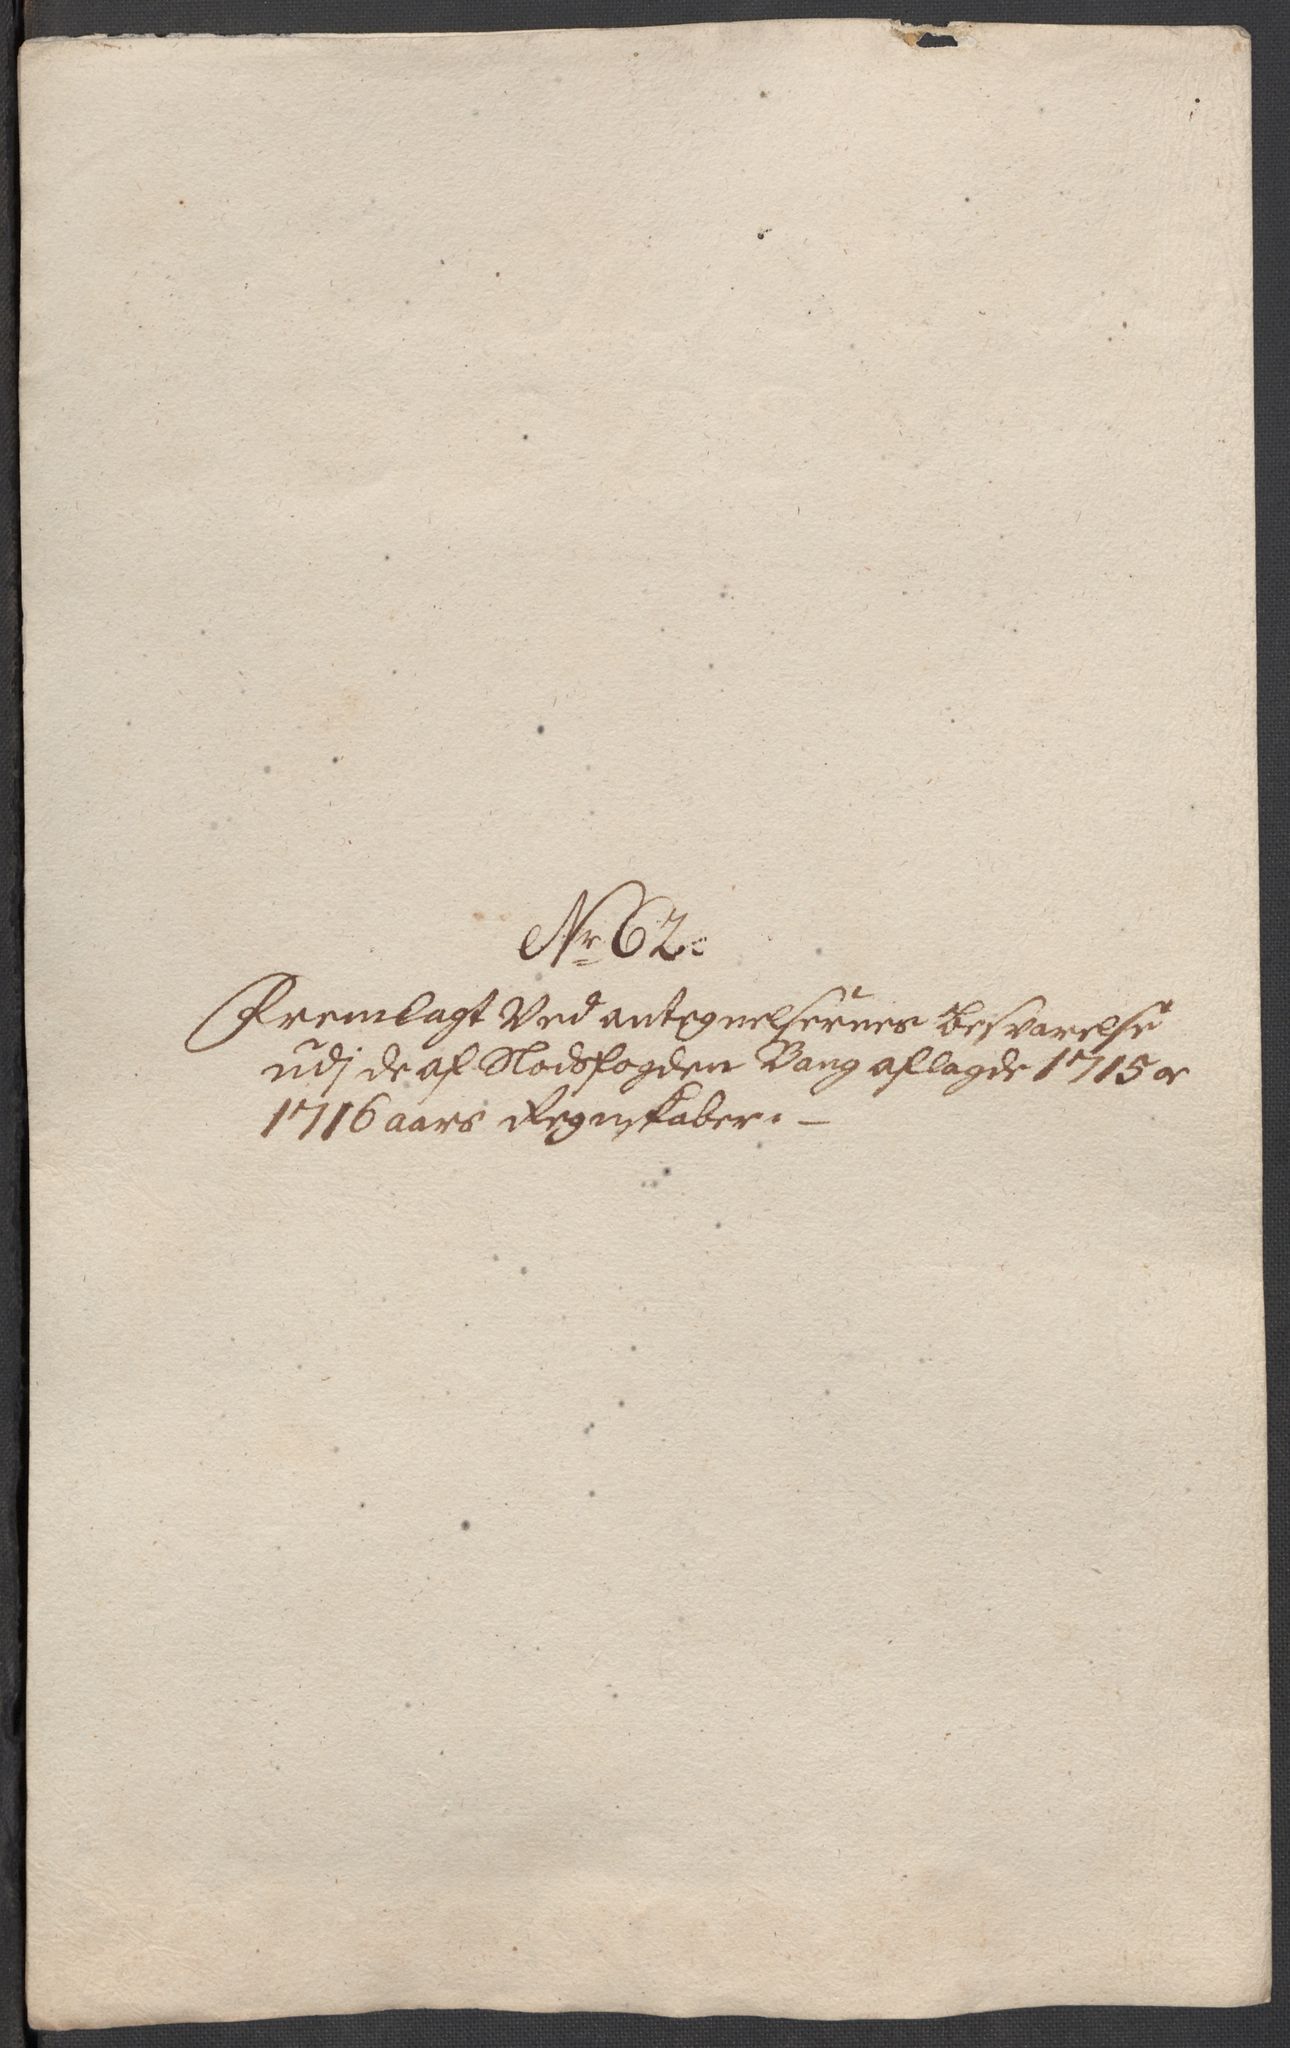 Nr 62.
Fremlagt Ved antegnelsernes besvarelse
udj de af Slodsfogden Bang aflagde 1715 or
1716 aars Regnskaber. –